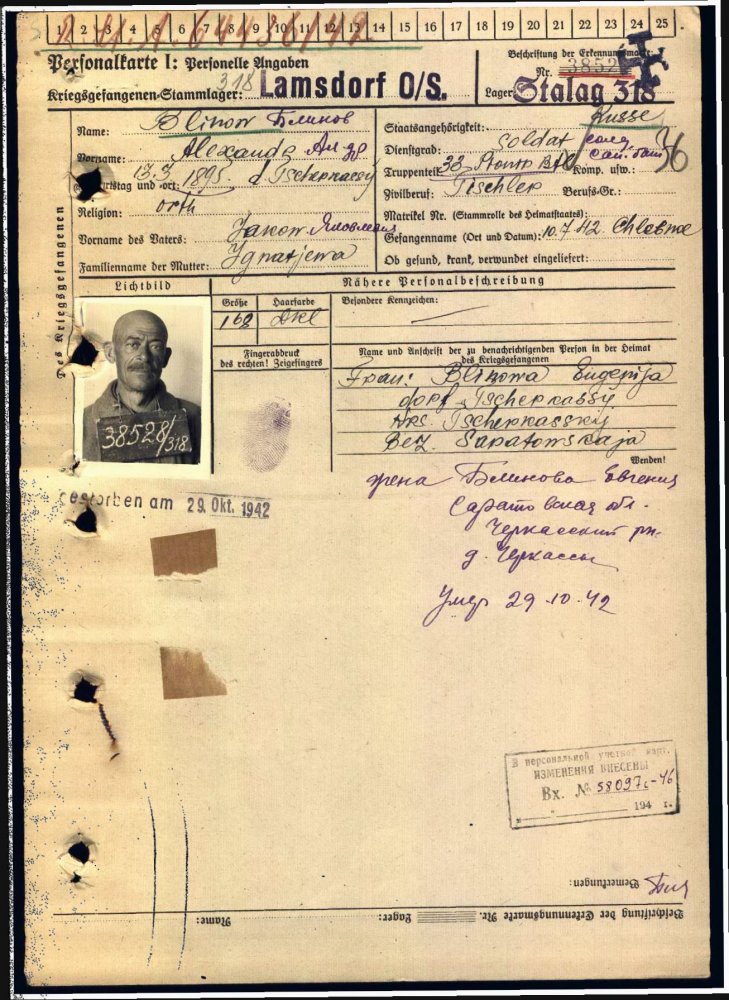 1 2 3 4 5 6 7 8 9 10 11 12 13 14 15 16 17 18 19 20 21 22 23 24 25
Personalkarte I: Personelle Angaben
Beschriftung der Erkennungsmarke:
Nr. 38528
Kriegsgefangenen-Stammlager: 318 Lamsdorf O/S.
Lager: Stalag 318
Des Kriegsgefangenen
Name: Blinow Блинов
Vorname: Alexandr Андр
Geburtstag und -ort: 13.3 1895. d Tscherkassy
Religion: orth
Vorname des Vaters: Jakow Яковлевич
Familienname der Mutter: Ignatjewa
Staatsangehörigkeit: Russe
Dienstgrad: Soldat солд
сан. бат
36
Truppenteil: 33 Komp. usw.:
Zivilberuf: Tischler Berufs-Gr.:
Matrikel Nr. (Stammrolle des Heimatstaates):
Gefangenname (Ort und Datum): 10.7.42.
Ob gesund, krank, verwundet eingeliefert:
Lichtbild
Nähere Personalbeschreibung
Größe Haarfarbe Besondere Kennzeichen:
168 dkl —
Fingerabdruck
des rechten! Zeigefingers
Name und Anschrift der zu benachrichtigenden Person in der Heimat
des Kriegsgefangenen
Frau: Blinowa Eugenija
dorf Tscherkassy
Krs. Tscherkassky
Bez. Saratowskaja
Wenden!
38528/318
жена Блинова Евгения
Саратовская обл.
Черкасский рн.
д. Черкассы
Умер 29.10.42
Gestorben am 29. Okt. 1942
В персональной учетной карт.
ИЗМЕНЕНИЯ ВНЕСЕНЫ
Вх. № 58097с-46
" " 194 г.
Bemerkungen:
Beschriftung der Erkennungsmarke Nr. Lager: Name: